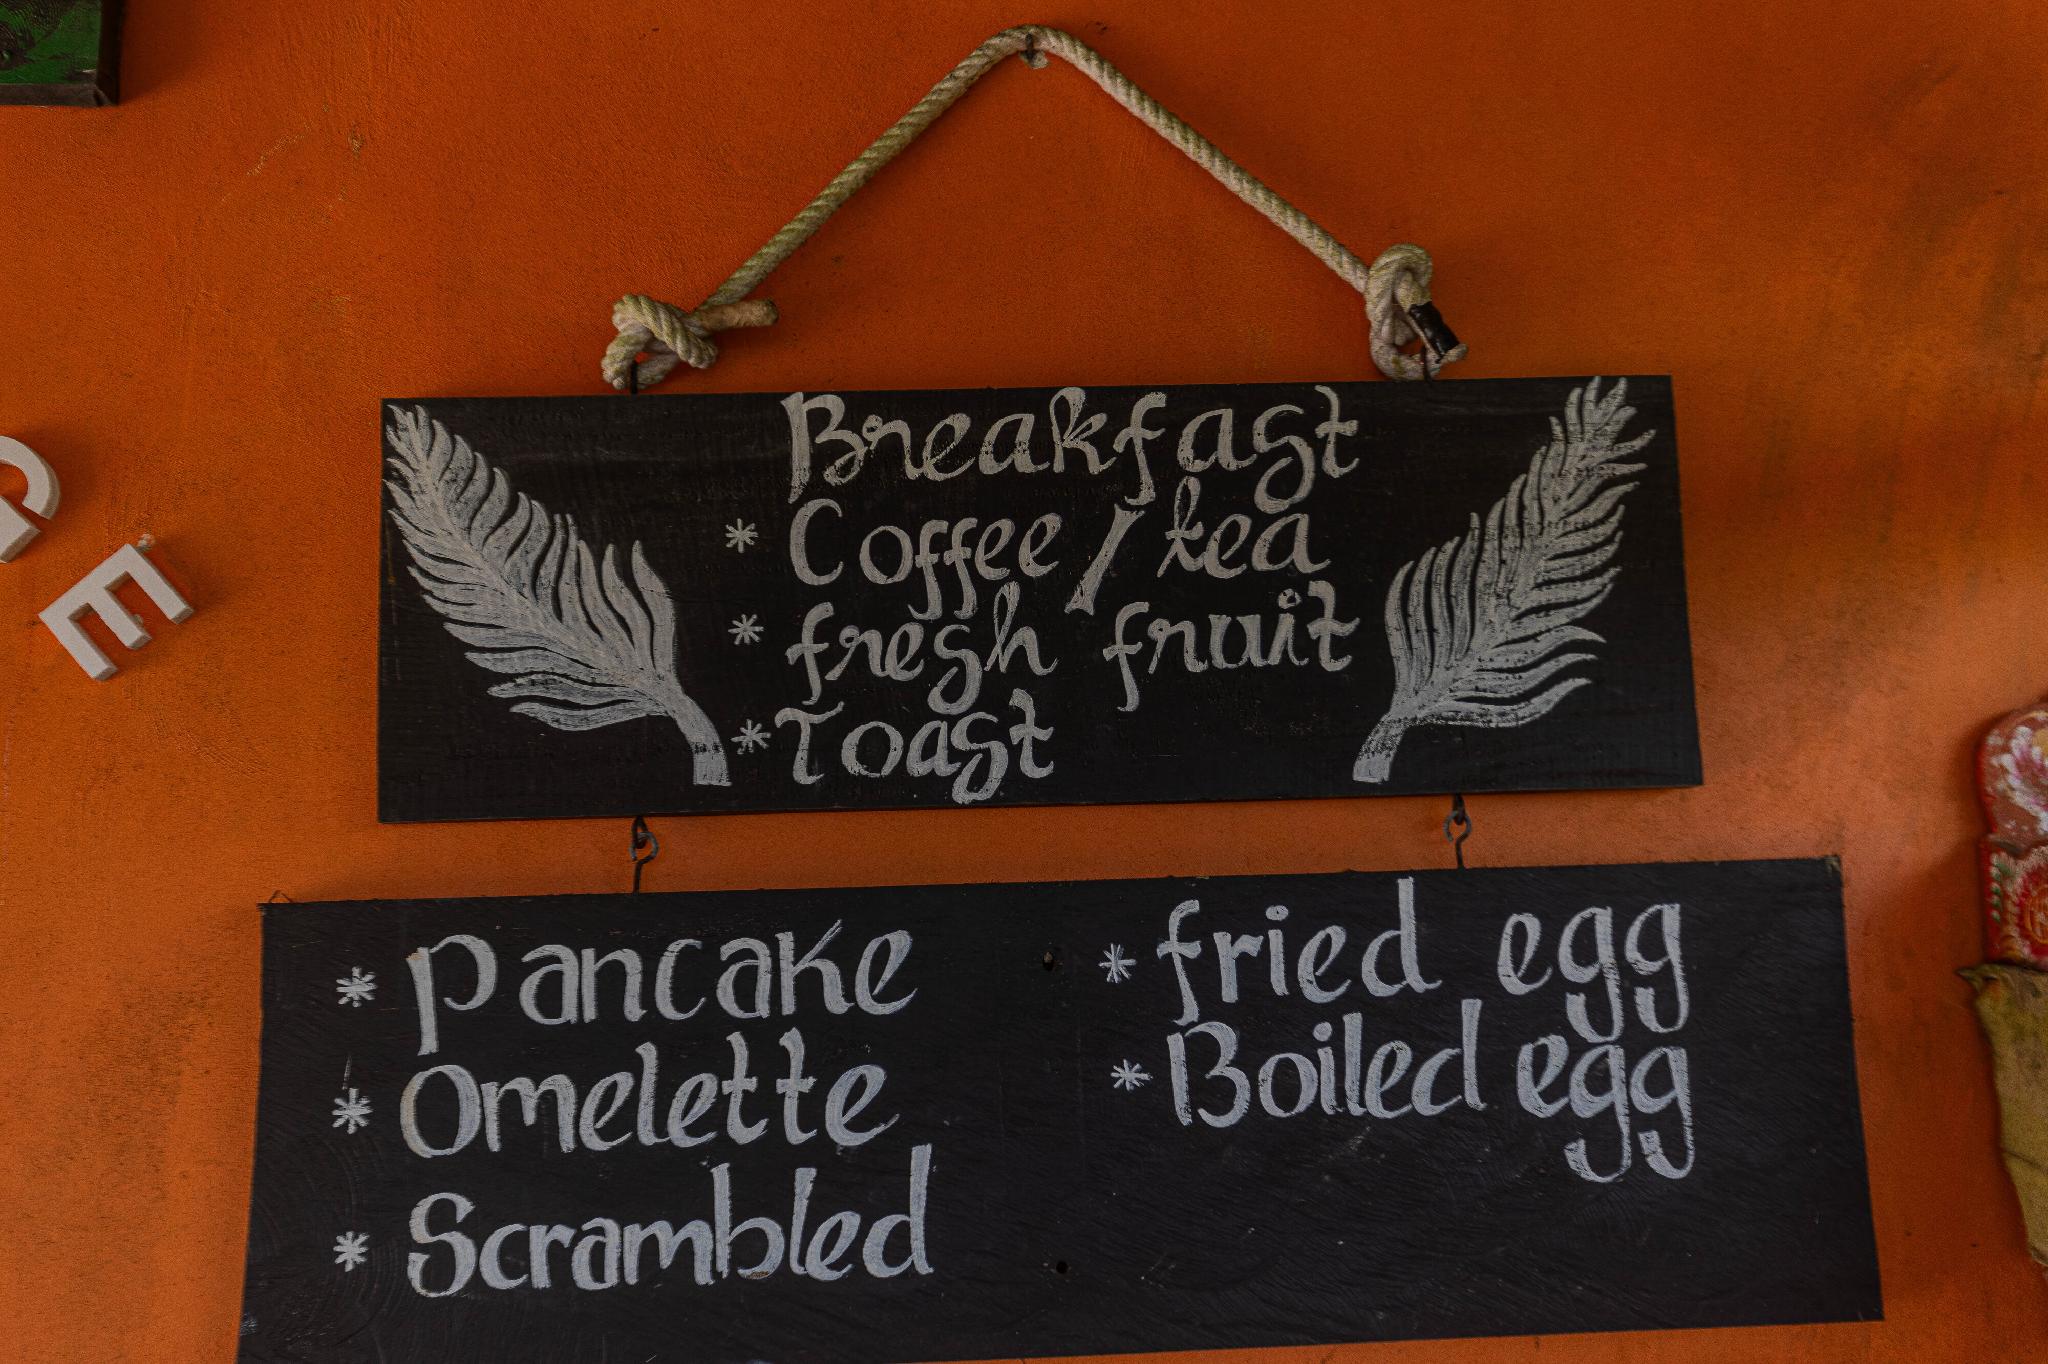 Breakfast
* Coffee / tea
* fresh fruit
* Toast
* Pancake
* Omelette
* Scrambled
* fried egg
* Boiled egg
G
E